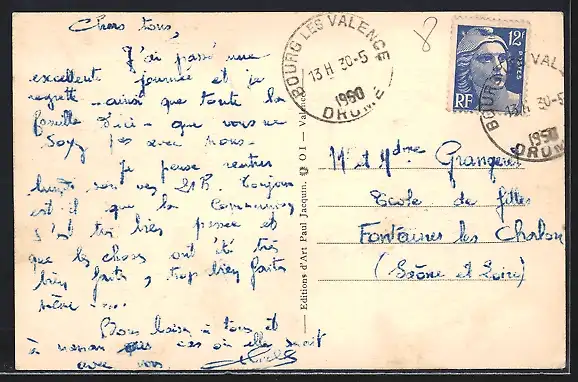 Chers tous,
J'ai passé une
excellente journée et je
regrette - ainsi que toute la
famille d'ici - que vous ne
soyez pas avec nous.
Je pense rentrer
lundi soir vers 21h. Toujours
est il que la
s'est très bien passée et
que les choses ont été très
bien faites, trop bien faites
même ....
Bons baisers à tous et
à maman au cas où elle serait
avec vous
Editions d'Art Paul Jacquin, 6 O I - Valence
BOURG LES VALENCE
13 H 30-5
1950
DROME
8
12F
POSTES
RF
BOURG VALENCE
13 H 30-5
1950
DROME
M. et Mdme Grangeret
Ecole de filles
Fontaines les Chalon
(Saône et Loire)